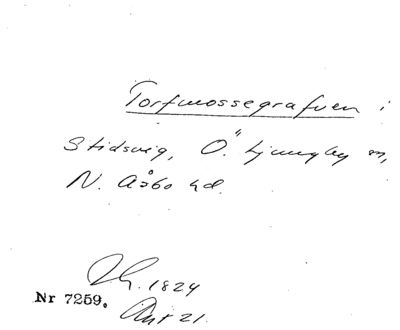 Torfmossegrafven i
Stidsvig, Ö. Ljungby sn,
N. Åsbo hd.
1824
Nr 7259. 21.